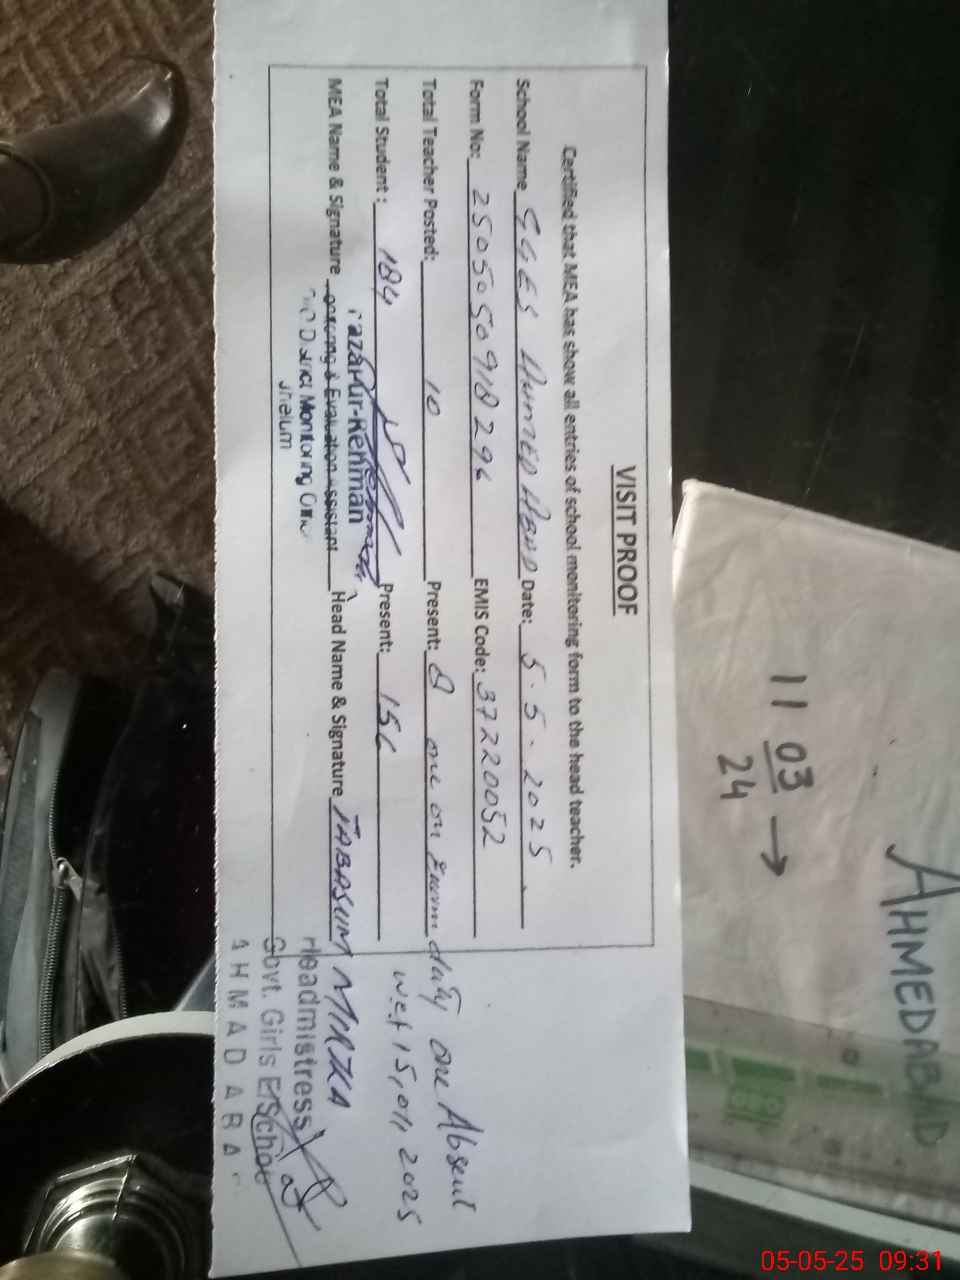 VISIT PROOF
Certified that MEA has show all entries of school monitoring form to the head teacher.
School Name GGES Date: 5.5.2025
Form No: EMIS Code: 37220052
Total Teacher Posted: 10 Present: 8 one on duty one Absent
w.e.f 15,04, 2025
Total Student : 184 Present: 156
MEA Name & Signature Head Name & Signature TABASUM MIRZA
Monitoring
Jhelum
Headmistress
Govt. Girls E/School
AHMADABA
AHMEDABAD
11 03 →
24
05-05-25 09:31